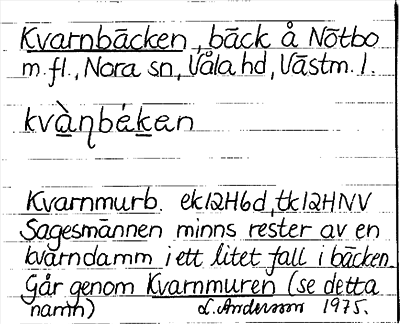 Kvarnbäcken, bäck å Nötbo
m.fl., Nora sn, Våla hd, Västm. l.
kvàɳbéken
Kvarnmurb. ek12H6d, tk12HNV
Sagesmännen minns rester av en
kvarndamm i ett litet fall i bäcken.
Går genom Kvarnmuren (se detta
namn) L. Andersson 1975.